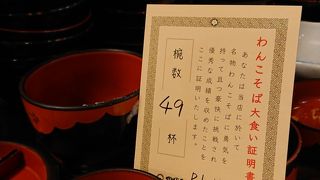 わんこそば大食い証明書
あなたは当店に於いて
名物わんこそばに勇気を
持って且つ豪快に挑戦され
優秀な成績を収めたことを
ここに証明いたします。
椀数
49
杯